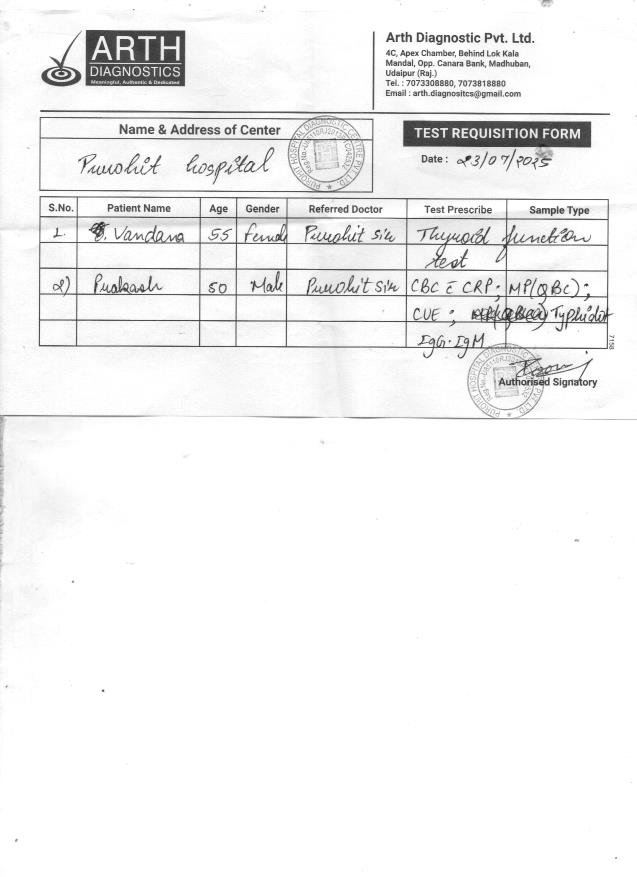 ARTH
DIAGNOSTICS
Meaningful, Authentic & Dedicated
Arth Diagnostic Pvt. Ltd.
4C, Apex Chamber, Behind Lok Kala
Mandal, Opp. Canara Bank, Madhuban,
Udaipur (Raj.)
Tel. : 7073308880, 7073818880
Email : arth.diagnositcs@gmail.com
Name & Address of Center
Purohit hospital
TEST REQUISITION FORM
Date : 23/07/2025
S.No. Patient Name Age Gender Referred Doctor Test Prescribe Sample Type
1. Vandana 55 Female Purohit Sir Thyroid function
test
2) Prakash 50 Male Purohit Sir CBC c̄ CRP ; MP(QBC) ;
CUE ; Typhidot
IgG. IgM
7158
PUROHIT HOSPITAL DIAGNOSTIC CENTRE PVT LTD.
Authorised Signatory